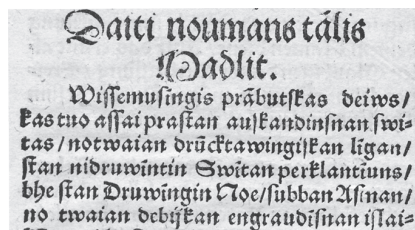 Daiti noumans tālis
Madlit.
Wissemusīngis prābutskas deiws/
kas tuo assai prastan auskandinsnan swi-
tas/notwaian drūcktawingiskan līgan/
stan nidruwīntin Switan perklantīuns/
bhe stan Druwīngin Noe/subban Asman/
no twaian debījkan engraudīsnan islai-